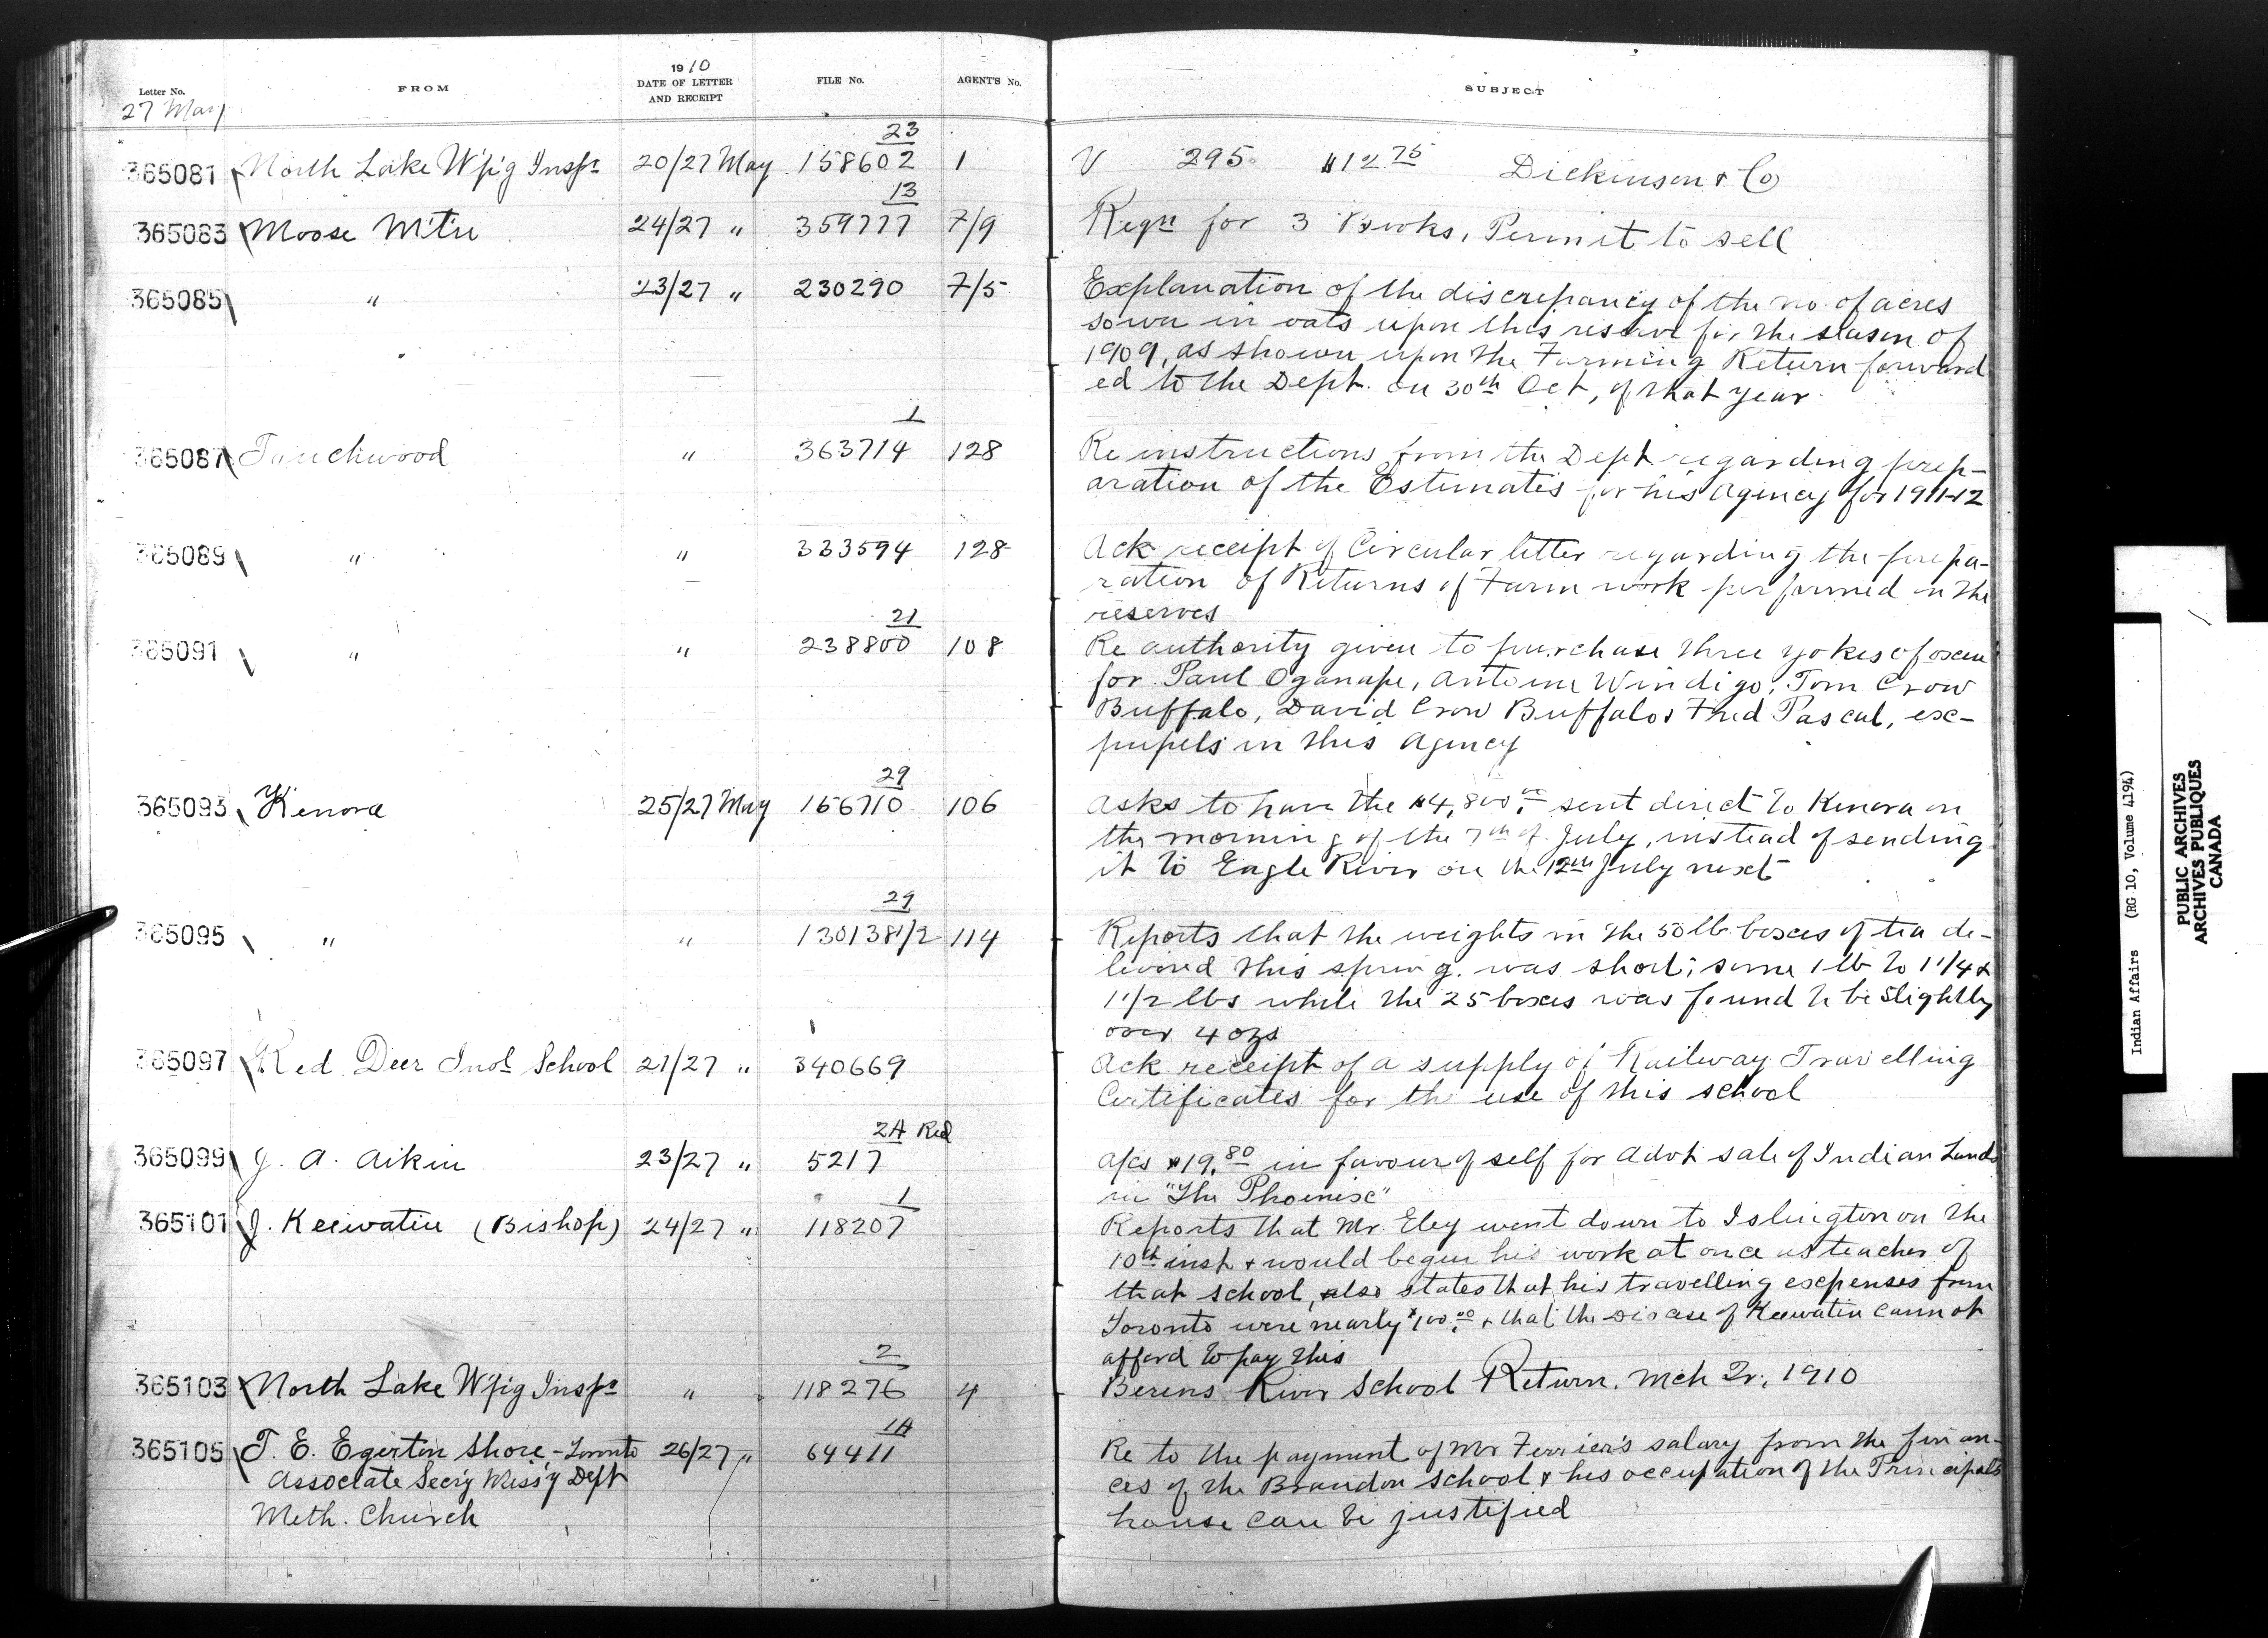 1910
Letter No. FROM DATE OF LETTER AND RECEIPT FILE No. AGENT'S No. SUBJECT
27 May
23
365081 North Lake W'p'g Insp.te 20/27 May 158602 1 V 295. $12.75 Dickinson & Co
13
365083 Moose Mtn 24/27 " 359777 7/9 Reqn for 3 Books, Permit to sell
365085 " 23/27 " 230290 7/5 Explanation of the discrepancy of the no. of acres
sown in oats upon this reserve for the season of
1909, as shown upon the Farming Return forward
ed to the Dept. on 30th Oct, of that year.
1
365087 Touchwood " 363714 128 Re instructions from the Dept regarding prep-
aration of the Estimates for his Agency for 1911-12
365089 " " 333594 128 Ack receipt of Circular letter regarding the prepa-
ration of Returns of Farm work performed on the
reserves
21
365091 " " 238800 108 Re authority given to purchase three yokes of oxen
for Paul Oganape, Antoine Windigo, Tom Crow
Buffalo, David Crow Buffalo & Fred Pascal, ex-
pupils in this Agency
29
365093 Kenora 25/27 May 156710 106 Asks to have the $4,800.00 sent direct to Kenora on
the morning of the 7th of July, instead of sending
it to Eagle River on the 12th July next
29
365095 " " 130138 1/2 114 Reports that the weights in the 50 lb. boxes of tea de-
livered this spring. was short; some 1 lb to 1 1/4 &
1 1/2 lbs while the 25 boxes was found to be slightly
over 4 ozs
1
365097 Red Deer Indl School 21/27 " 340669 Ack receipt of a supply of Railway Travelling
Certificates for the use of this school
2A Red
365099 J. A. Aikin 23/27 " 5217 a/cs $19.80 in favour of self for Advt sale of Indian Lands
in "The Phoenix"
1
365101 J. Keewatin (Bishop) 24/27 " 118207 Reports that Mr. Eley went down to Islington on the
10th inst & would begin his work at once as teacher of
that school, also states that his travelling expenses from
Toronto were nearly $100.00 & that the Diocese of Keewatin cannot
afford to pay this
2
365103 North Lake W'p'g Insp.te " 118276 4 Berens River School Return. Mch Qr, 1910
1A
365105 T. E. Egerton Shore - Toronto 26/27 " 64411 Re to the payment of Mr Ferrier's salary from the finan-
Associate Secr'y Miss'y Dept ces of the Brandon School & his occupation of the Principals
Meth. Church house can be justified
Indian Affairs (RG 10, Volume 4194)
PUBLIC ARCHIVES
ARCHIVES PUBLIQUES
CANADA